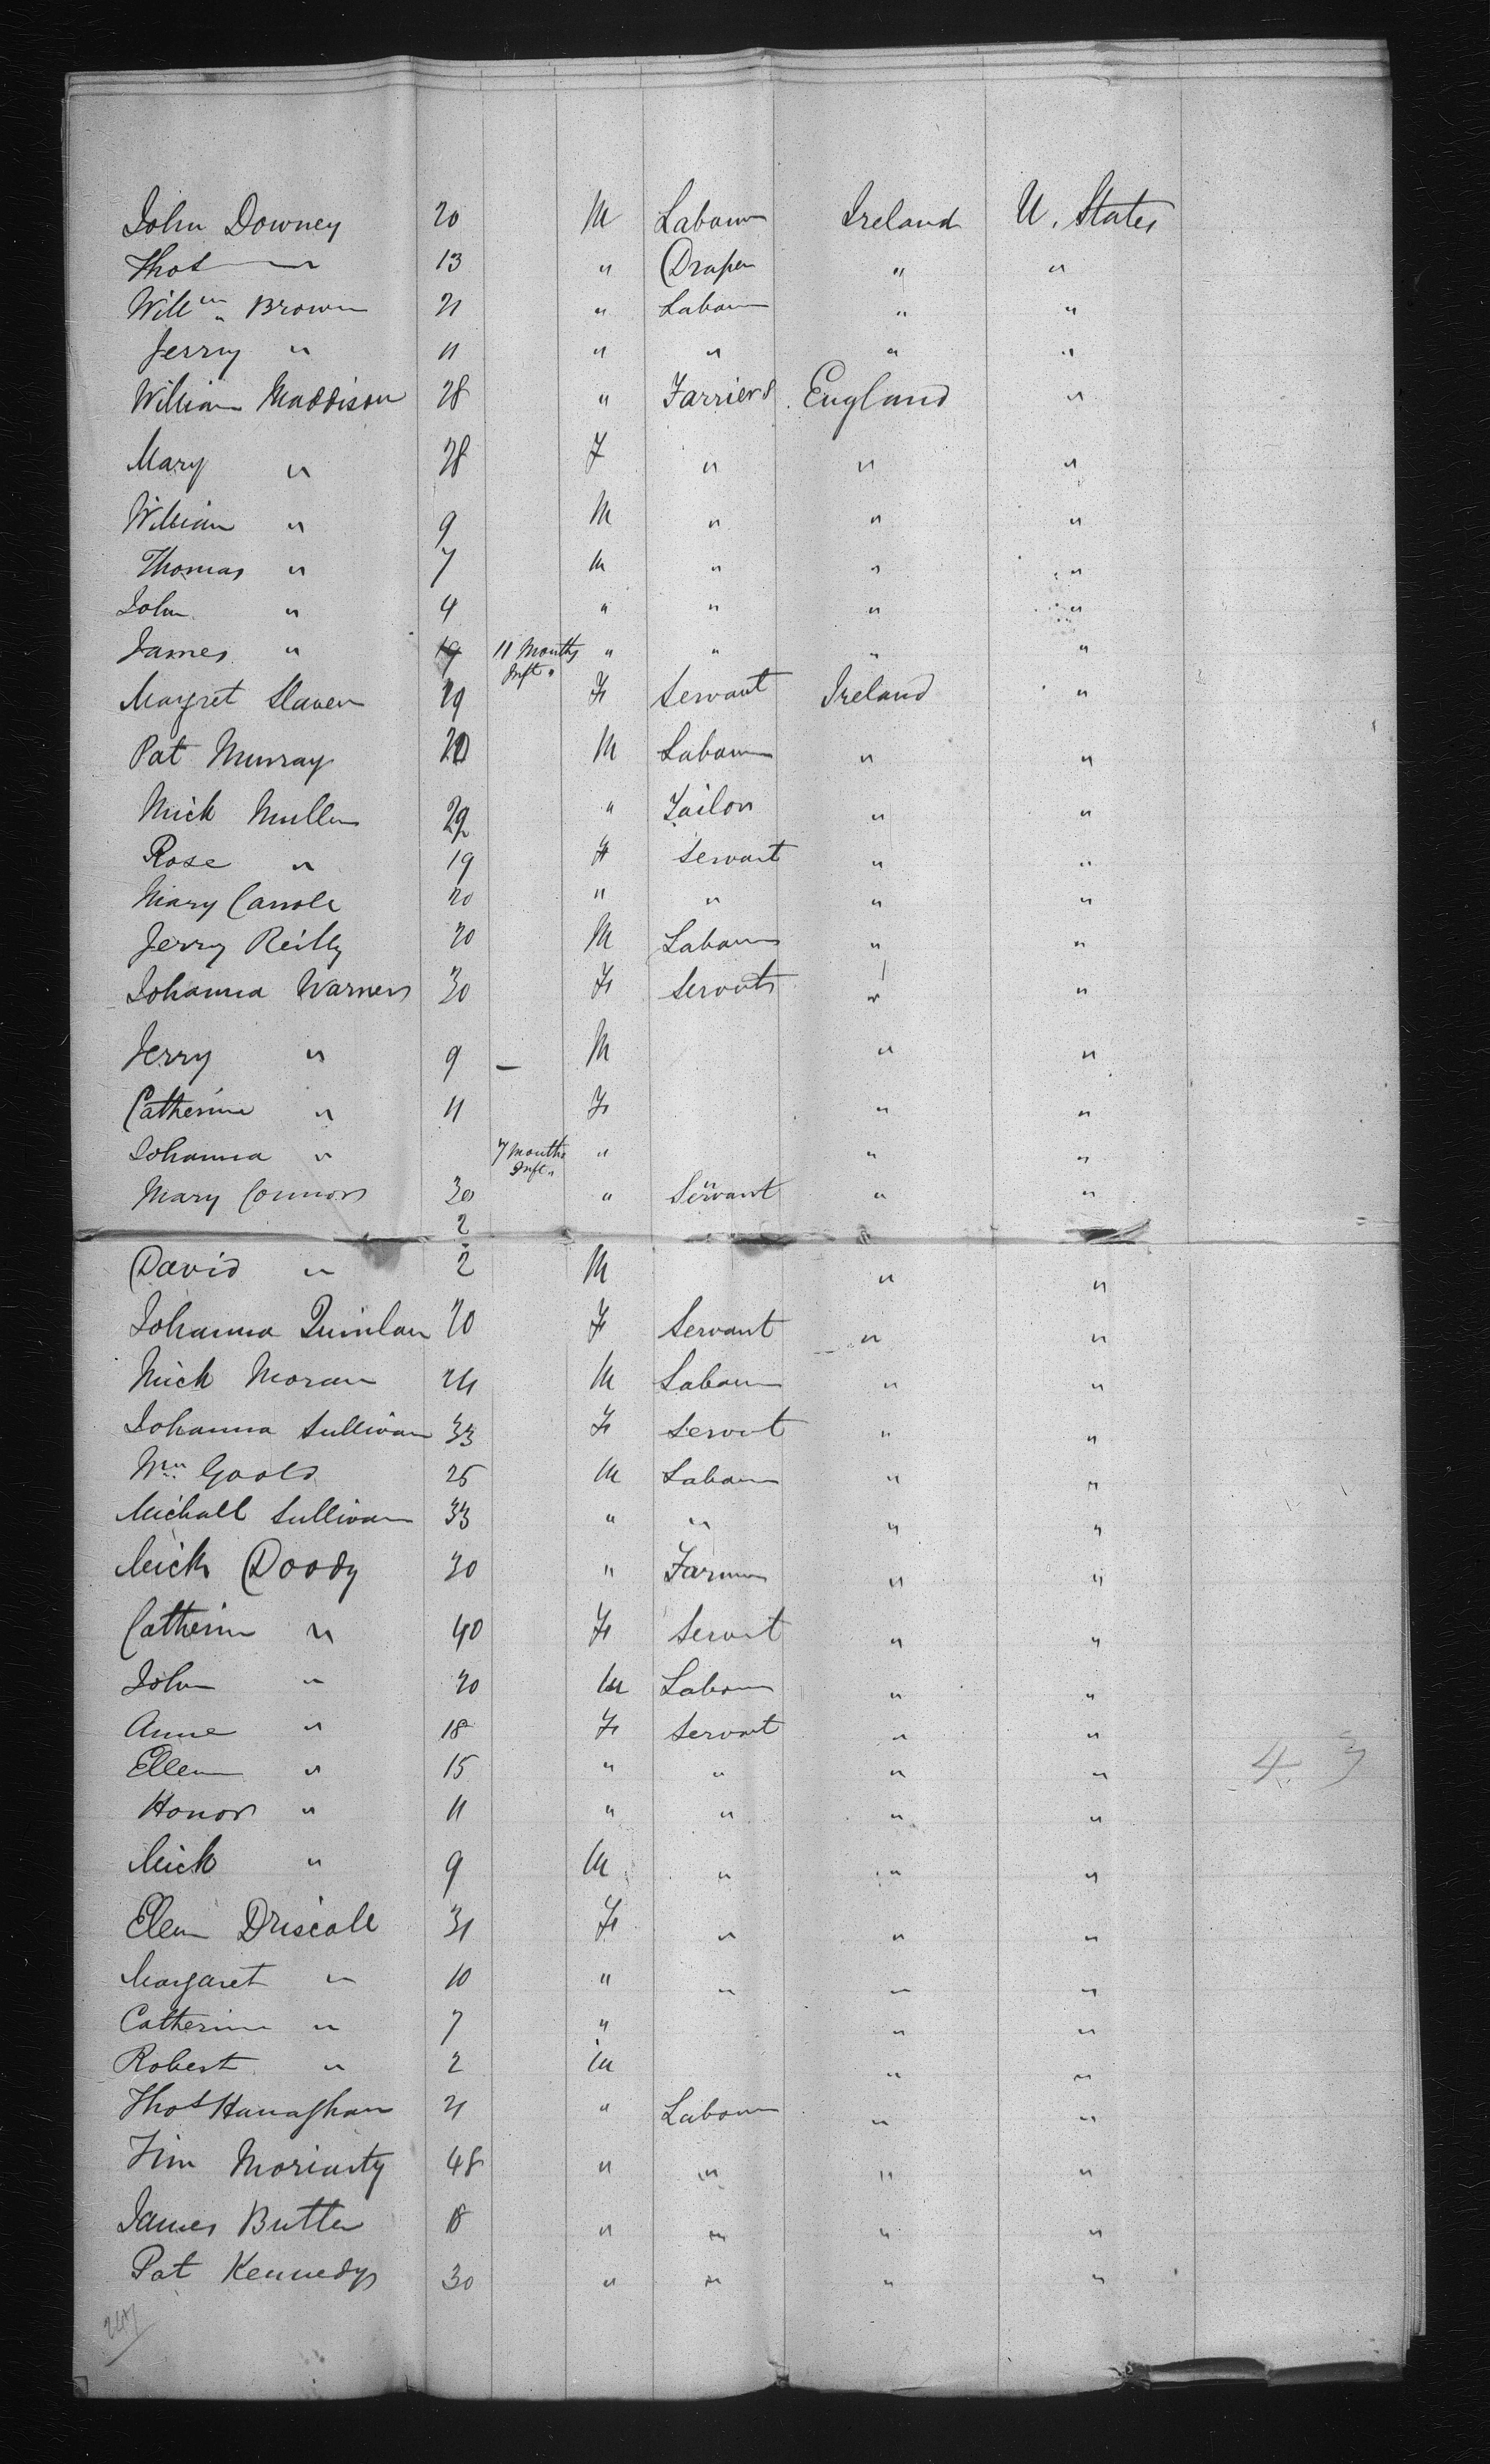 John Downey 20 M Labour Ireland U. States
Thos — 13 " Draper " "
Willm " Brown 21 " Labour " "
Jerry " 11 " " " "
William Maddison 28 " Farriers England "
Mary " 28 F " " "
William " 9 M " " "
Thomas " 7 M " " "
John " 4 " " " "
James " 11 Months Inft " " " " "
Margret Slaven 29 F Servant Ireland "
Pat Murray 20 M Labour " "
Mick Mullen 29 " Tailor " "
Rose " 19 F Servant " "
Mary Carrole 20 " " " "
Jerry Reilly 20 M Labour " "
Johanna Warners 30 F Servnts " "
Jerry " 9 — M " "
Catherine " 11 F " "
Johanna " 7 Months Inft " " " "
Mary Connors 30 " Servant " "
2
David " 2 M " "
Johanna Quinlan 20 F Servant " "
Mick Moran 24 M Labour " "
Johanna Sullivan 33 F Servnt " "
Wm Goold 25 M Labour " "
Michall Sullivan 33 " " " "
Mick Doody 30 " Farmer " "
Catherin " 40 F Servnt " "
John " 20 M Labour " "
Anne " 18 F Servant " "
Ellen " 15 " " " " 4 3
Honor " 11 " " " "
Mick " 9 M " " "
Ellen Driscoll 31 F " " "
Margaret " 10 " " " "
Catherine " 7 " " "
Robert " 2 M " "
Thos Hanaghan 21 " Labour " "
Tim Moriarty 48 " " " "
James Butler 18 " " " "
Pat Kennedy 30 " " " "
247